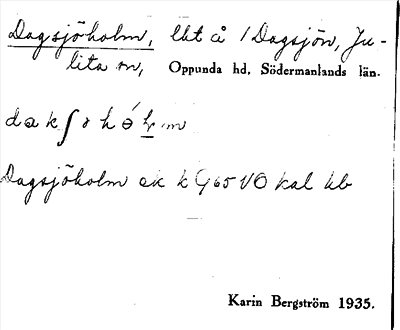 Dagsjöholm, lht å /Dagsjön, Ju-
lita sn, Oppunda hd, Södermanlands län.
Dagsjöholm ek k G 65 VO kal kb
Karin Bergström 1935.